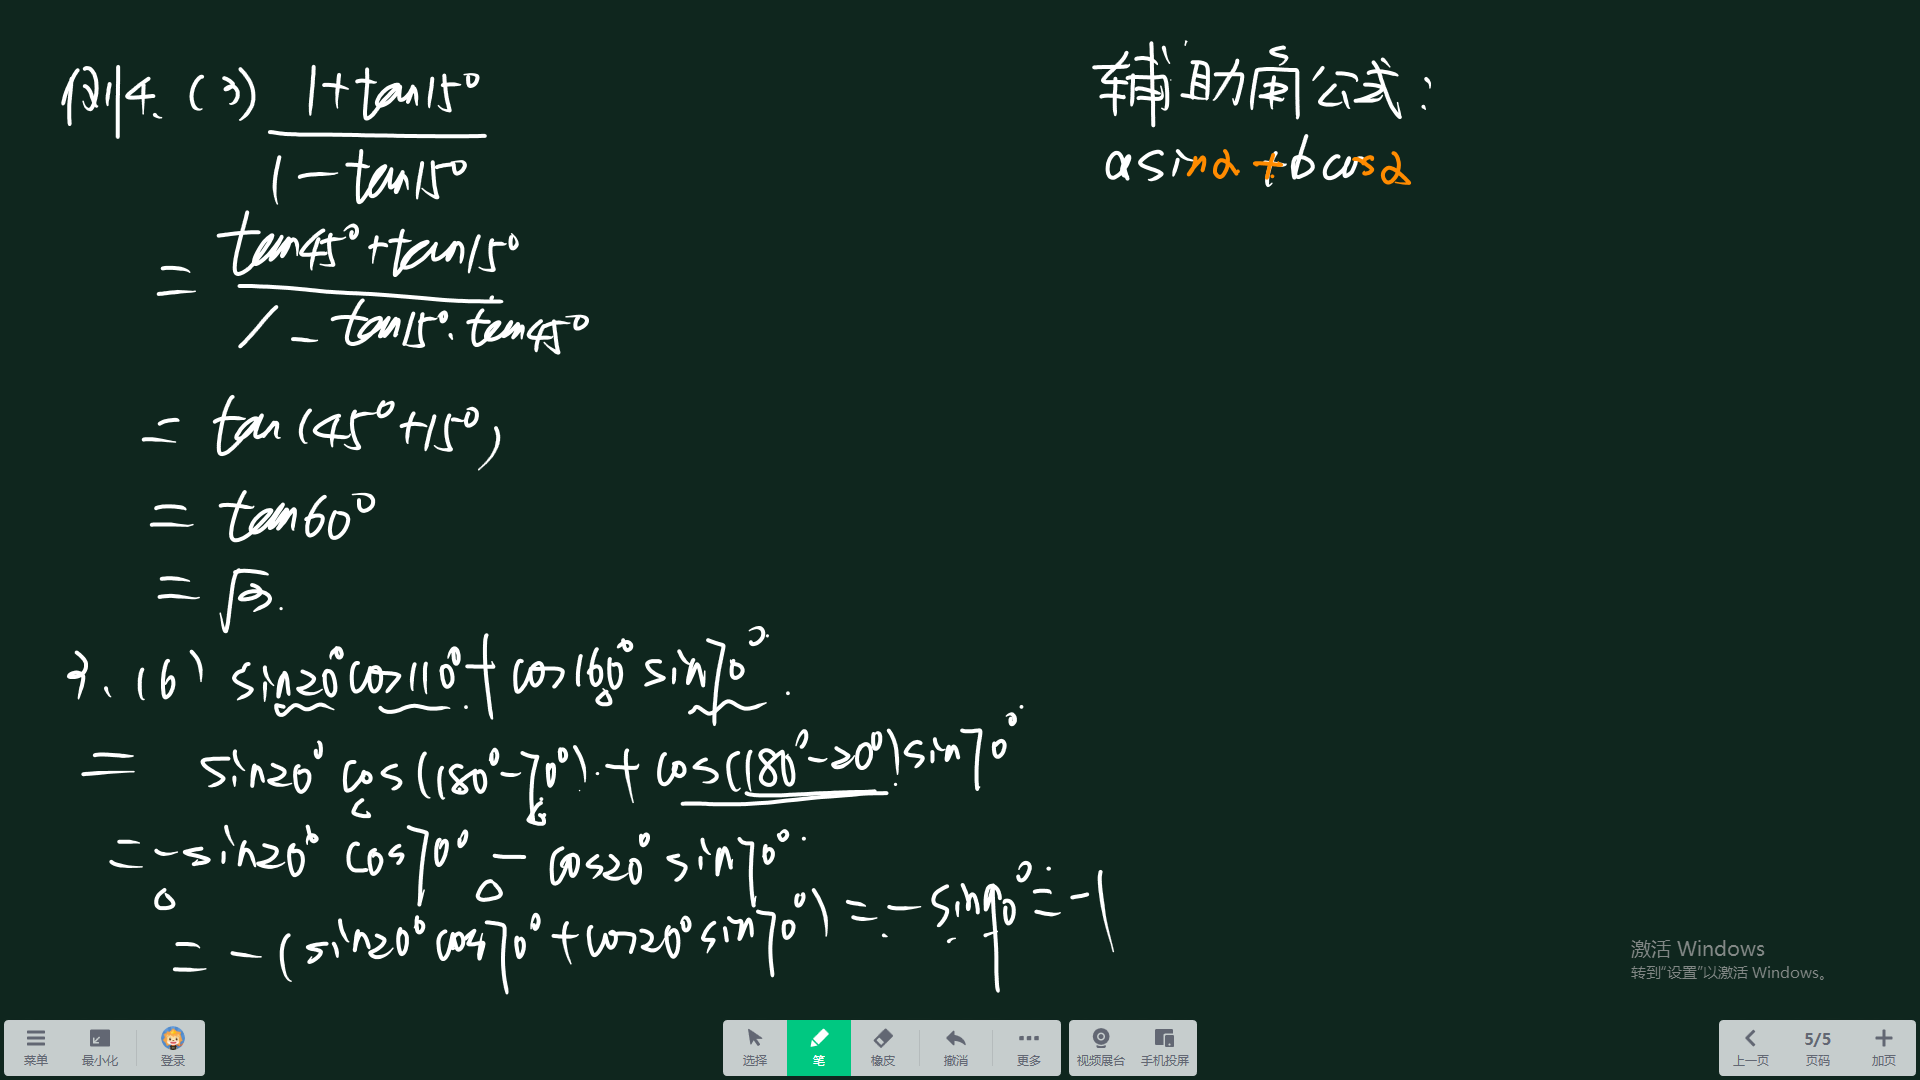 例4、(3) 1+tan15°
1-tan15°
= tan45°+tan15°
1-tan15°·tan45°
= tan(45°+15°)
= tan60°
= √3.
3、(6) sin20°cos110°+cos160°sin70°
= sin20°cos(180°-70°)+cos(180°-20°)sin70°
=-sin20°cos70°-cos20°sin70°
= -(sin20°cos70°+cos20°sin70°) = -sin90° = -1
辅助角公式:
asinα+bcosα
激活 Windows
转到“设置”以激活 Windows。
菜单 最小化 登录 选择 笔 橡皮 撤消 更多 视频展台 手机投屏 上一页 5/5 页码 加页